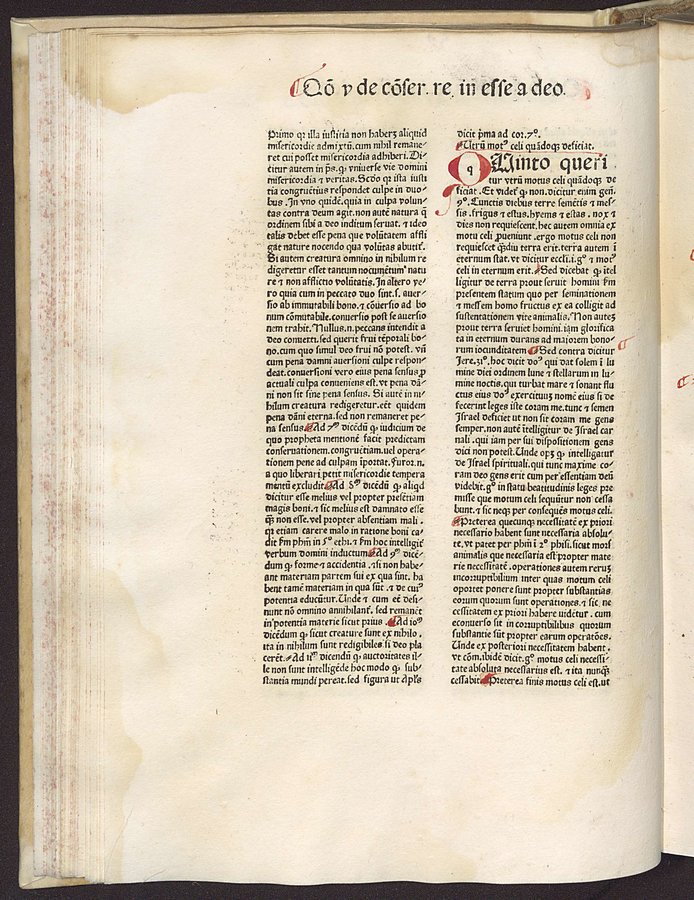 Qō v de cōſer. re. in eſſe a deo.
Primo qꝛ illa iuſticia non haberꝫ aliquid
miſericordie admixtū. cum nihil remane-
ret cui poſſet miſericordia adhiberi. Di-
citur autem in pſ. ꝙ vniuerſe vie domini
miſericordia ⁊ veritas. Scdo qꝛ iſta iuſti
tia congruētius reſpondet culpe in duo-
bus. In vno quidē. quia in culpa volun-
tas contra deum agit. non autē natura q̄
ordinem ſibi a deo inditum ſeruat. ⁊ ideo
talis debet eſſe pena que volūtatem affli
gat nature nocendo qua volūtas abutit᷑.
Si autem creatura omnino in nihilum re
digeretur eſſet tantum nocumētum natu
re ⁊ non afflictio volūtatis. In altero ve-
ro quia cum in peccato duo ſint. ſ. auer-
ſio ab immutabili bono. ⁊ cōuerſio ad bo
num cōmutabile. conuerſio poſt ſe auerſio
nem trahit. Nullus. n. peccans intendit a
deo conuerti. ſed querit frui tēporali bo-
no. cum quo ſimul deo frui nō poteſt. vñ
cum pena damni auerſioni culpe reſpon-
deat. conuerſioni vero eius pena ſenſus ꝓ
actuali culpa conueniens eſt. vt pena dā-
ni non ſit ſine pena ſenſus. Si autē in ni-
hilum creatura redigeretur. eēt quidem
pena dāni eterna. ſed non remaneret pe-
na ſenſus. Ad 7ᵐ dicēdū ꝙ iudicium de
quo propheta mentionē facit predictam
conſeruationem. congruētiam. vel opera-
tionem pene ad culpam īportat. furor. n.
a quo liberari petit miſericordie tempera
mentū excludit. Ad 8ᵐ dicēdū ꝙ aliqd
dicitur eſſe melius vel propter preſētiam
magis boni. ⁊ ſic melius eſt damnato eſſe
ꝙ̄ non eſſe. vel propter abſentiam mali.
qꝛ etiam carere malo in ratione boni ca-
dit ẜm phm̄ in 5º ethi. ⁊ ẜm hoc intelligit᷑
verbum domini inductum. Ad 9ᵐ dicē-
dum ꝙ forme ⁊ accidentia. ⁊ſi non habe-
ant materiam partem ſui ex qua ſint. ha
bent tamē materiam in qua ſūt. ⁊ de cuiꝰ
potentia educūtur. Unde ⁊ cum eē deſi-
nunt nō omnino annihilant᷑. ſed remanēt
in potentia materie ſicut prius. Ad 10ᵐ
dicēdum ꝙ ſicut creature ſunt ex nihilo.
ita in nihilum ſunt redigibiles ſi deo pla
ceret. Ad 11ᵐ dicendū ꝙ auctoritates il-
le non ſunt intelligēde hoc modo ꝙ ſub-
ſtantia mundi pereat. ſed figura ut apl̄s
dicit pma ad cor. 7º.
Utrū motꝰ celi quādoqꝫ deficiat.
QUinto queri
tur vtrū motus celi quādoqꝫ de
ficiat. Et videt᷑ ꝙ non. dicitur enim gen̄.
9º. Cunctis diebus terre ſemētis ⁊ meſ-
ſis. frigus ⁊ eſtus. hyems ⁊ eſtas. nox ⁊
dies non requieſcent. hec autem omnia ex
motu celi ꝓueniunt. ergo motus celi non
requieſcet ꝙ̄diu terra erit. terra autem ī
eternum ſtat. vt dicitur eccli. i. gº ⁊ motꝰ
celi in eternum erit. Sed dicebat ꝙ ītel
ligitur de terra prout ſeruit homini ẜm
preſentem ſtatum quo per ſeminationem
⁊ meſſem homo fructus ex ea colligit ad
ſuſtentationem vite animalis. Non auteꝫ
prout terra ſeruiet homini. iam glorifica
ta in eternum durans ad maiorem bono-
rum iocunditatem. Sed contra dicitur
Jere. 31º. hoc dicit dōꝰ qui dat ſolem ī lu
mine diei ordinem lune ⁊ ſtellarum in lu-
mine noctis. qui turbat mare ⁊ ſonant flu
ctus eius dōꝰ exercituuꝫ nomē eius ſi de
fecerint leges iſte coram me. tunc ⁊ ſemen
Iſrael deficiet ut non ſit coram me gens
ſemper. non autē ītelligitur de Iſrael car
nali. qui iam per ſui diſpoſitionem gens
dici non poteſt. Unde opꝫ ꝙ intelligatur
de Iſrael ſpirituali. qui tunc maxime co-
ram deo gens erit cum per eſſentiam deū
videbit. gº in ſtatu beatitudinis leges pre
miſſe que motum celi ſequūtur non ceſſa
bunt. ⁊ ſic neqꝫ per conſequēs motus celi.
Preterea quecunqꝫ neceſſitatē ex priori
neceſſario habent ſunt neceſſaria abſolu-
te. vt patet per phm̄ ī 2º phiſi. ſicut mors
animalis que neceſſaria eſt propter mate
rie neceſſitatē. operationes autem reruꝫ
incorruptibilium inter quas motum celi
oportet ponere ſunt propter ſubſtantias
eorum quorum ſunt operationes. ⁊ ſic ne
ceſſitatem ex priori habere vidētur. cum
econuerſo ſit in corruptibilibus quorum
ſubſtantie ſūt propter earum operatōes.
Unde ex poſteriori neceſſitatem habent.
vt cōm. ibidē dicit. gº motus celi neceſſi-
tate abſoluta neceſſarius eſt. ⁊ ita nunqꝫ̄
ceſſabit. Preterea finis motus celi eſt. ut